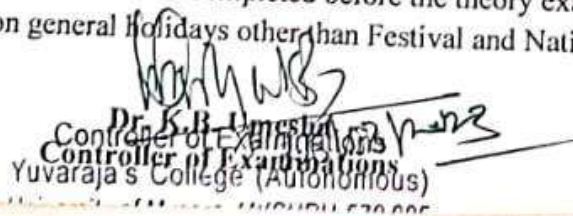 completed before the theory exa
on general Holidays other than Festival and Nati
Dr. K.B. Umesh
Controller of Examinations
Controller of Examinations
Yuvaraja's College (Autonomous)